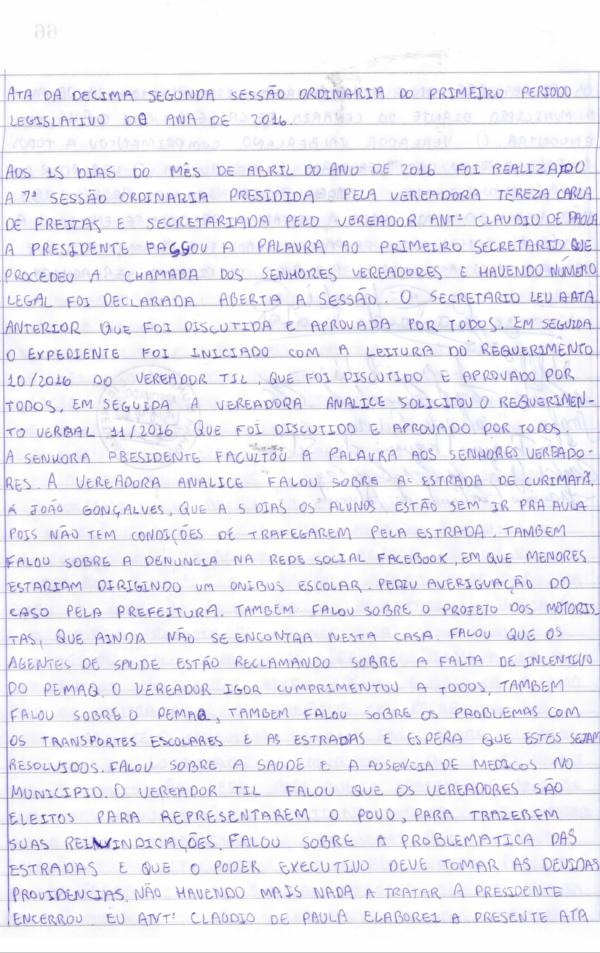 ATA DA DECIMA SEGUNDA SESSÃO ORDINARIA DO PRIMEIRO PERIODO
LEGISLATIVO DO ANA DE 2016.
AOS 15 DIAS DO MÊS DE ABRIL DO ANO DE 2016 FOI REALIZADO
A 7ª SESSÃO ORDINARIA PRESIDIDA PELA VEREADORA TEREZA CARLA
DE FREITAS, E SECRETARIADA PELO VEREADOR ANTº CLAUDIO DE PAULA
A PRESIDENTE PASSOU A PALAVRA AO PRIMEIRO SECRETARIO QUE
PROCEDEU A CHAMADA DOS SENHORES VEREADORES E HAVENDO NÚMERO
LEGAL FOI DECLARADA ABERTA A SESSÃO. O SECRETARIO LEU A ATA
ANTERIOR QUE FOI DISCUTIDA E APROVADA POR TODOS. EM SEGUIDA
O EXPEDIENTE FOI INICIADO COM A LEITURA DO REQUERIMENTO
10/2016 DO VEREADOR TIL, QUE FOI DISCUTIDO E APROVADO POR
TODOS. EM SEGUIDA A VEREADORA ANALICE SOLICITOU O REQUERIMEN-
TO VERBAL 11/2016 QUE FOI DISCUTIDO E APROVADO POR TODOS.
A SENHORA PRESIDENTE FACULTOU A PALAVRA AOS SENHORES VEREADO-
RES. A VEREADORA ANALICE FALOU SOBRE A ESTRADA DE CURIMATÃ,
A JOÃO GONÇALVES, QUE A 5 DIAS OS ALUNOS ESTÃO SEM IR PRA AULA
POIS NÃO TEM CONDIÇÕES DE TRAFEGAREM PELA ESTRADA. TAMBEM
FALOU SOBRE A DENUNCIA NA REDE SOCIAL FACEBOOK, EM QUE MENORES
ESTARIAM DIRIGINDO UM ONIBUS ESCOLAR. PEDIU AVERIGUAÇÃO DO
CASO PELA PREFEITURA. TAMBEM FALOU SOBRE O PROJETO DOS MOTORIS
TAS, QUE AINDA NÃO SE ENCONTRA NESTA CASA. FALOU QUE OS
AGENTES DE SAUDE ESTÃO RECLAMANDO SOBRE A FALTA DE INCENTIVO
DO PEMAQ. O VEREADOR IGOR CUMPRIMENTOU A TODOS, TAMBEM
FALOU SOBRE O PEMAQ, TAMBEM FALOU SOBRE OS PROBLEMAS COM
OS TRANSPORTES ESCOLARES E AS ESTRADAS E ESPERA QUE ESTES SEJAM
RESOLVIDOS. FALOU SOBRE A SAUDE E A AUSENCIA DE MEDICOS NO
MUNICIPIO. O VEREADOR TIL FALOU QUE OS VEREADORES SÃO
ELEITOS PARA REPRESENTAREM O POVO, PARA TRAZEREM
SUAS REINVINDICAÇÕES. FALOU SOBRE A PROBLEMATICA DAS
ESTRADAS E QUE O PODER EXECUTIVO DEVE TOMAR AS DEVIDAS
PROVIDENCIAS. NÃO HAVENDO MAIS NADA A TRATAR A PRESIDENTE
ENCERROU. EU ANTº CLAUDIO DE PAULA ELABOREI A PRESENTE ATA